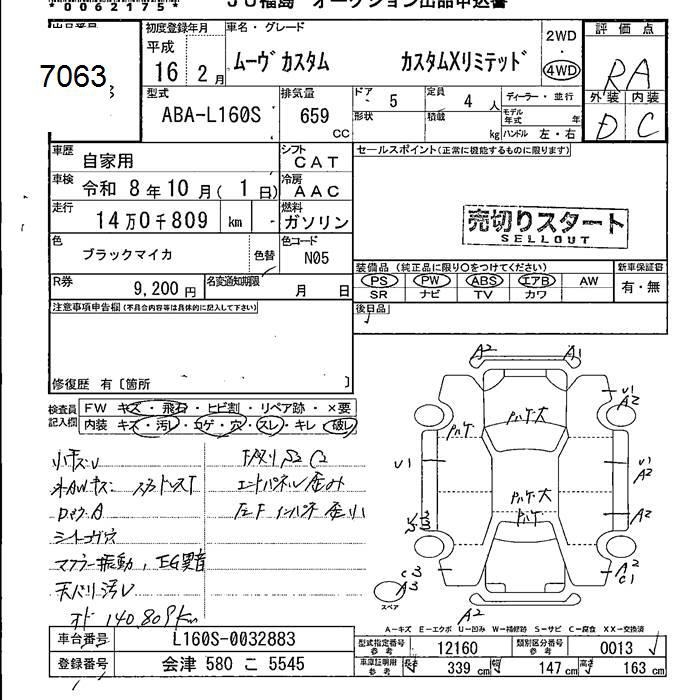 00621751
JU福島 オークション出品申込書
7063
初度登録年月
平成
16年 2月
車名・グレード
ムーヴカスタム カスタムXリミテッド
2WD
・
4WD
評価点
RA
外装 内装
D C
型式
ABA-L160S
排気量
659
CC
ドア 5 定員 4 人
形状 積載 kg
ディーラー・並行
モデル年式 年
ハンドル 左・右
車歴
自家用
シフト
CAT
セールスポイント(正常に機能するものに限ります)
車検
令和 8年10月( 1日)
冷房
AAC
走行
14万0千809 km
燃料
ガソリン
売切りスタート
SELLOUT
色
ブラックマイカ
色替
色コード
N05
装備品(純正品に限り○をつけてください)
PS ・ PW ・ ABS ・ エアB ・ AW
SR ナビ TV カワ
新車保証書
有・無
R券
9,200円
名変通知期限
月 日
後日品
注意事項申告欄(不具合内容等は具体的に記入して下さい)
修復歴 有〔箇所 〕
検査員記入欄
FW キズ・飛石・ヒビ割・リペア跡・×要
内装 キズ・汚レ・コゲ・穴・スレ・キレ・破レ
小キズU
外AWキズ
ロッカーA
シートコゲ穴
マフラー振動、EG異音
天バリ汚レ
オド 140,809km
下廻りS2 C2
エンドパネル歪み
左Fインパネ歪小
A2 A1
U1
A2
パケ大
パケ
U1
U1
A2
パケ大
パケ
A2
A2
C1
C3
A3
スペア
A2
A-キズ E-エクボ U-凹み W-補修跡 S-サビ C-腐食 XX-交換済
車台番号
L160S-0032883
登録番号
会津 580 こ 5545
型式指定番号
参考
12160
類別区分番号
参考
0013
車庫証明用
参考
長さ 339 cm 幅 147 cm 高さ 163 cm